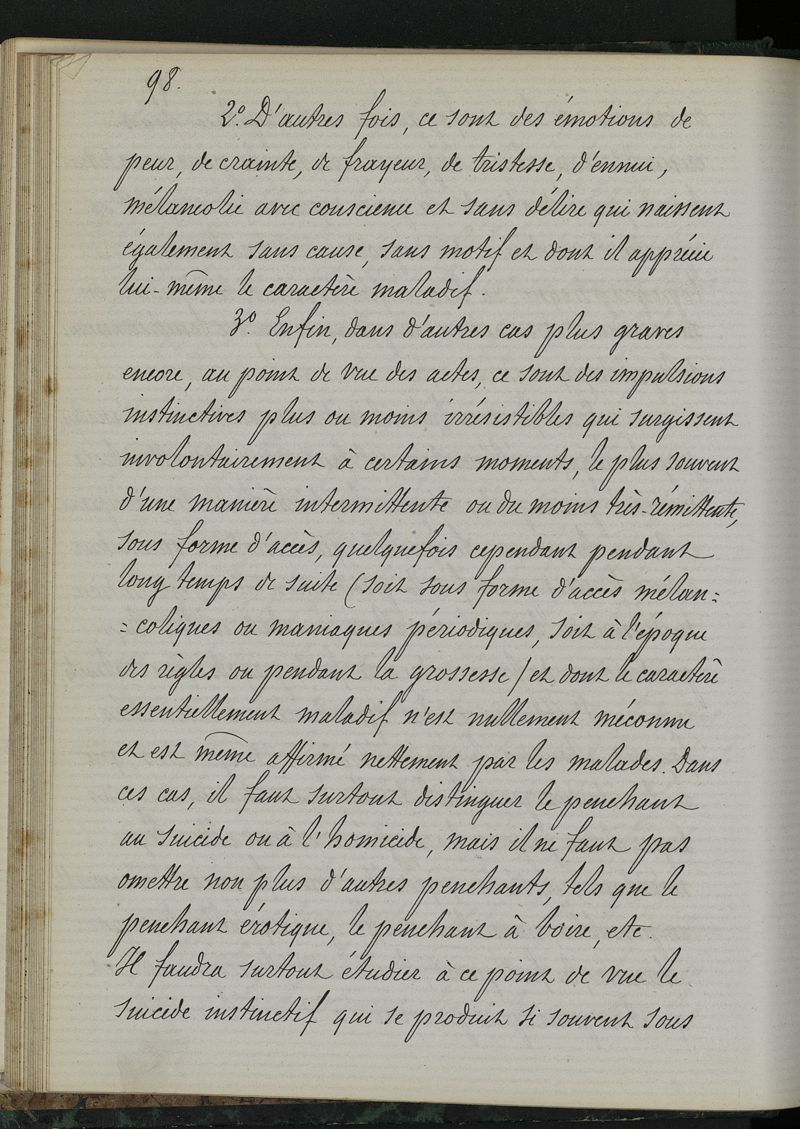 98.
2º. D'autres fois, ce sont des émotions de
peur, de crainte, de frayeur, de tristesse, d'ennui,
mélancolie avec conscience et sans délire qui naissent
également sans cause, sans motif et dont il apprécie
lui-même le caractère maladif.
3º. Enfin, dans d'autres cas plus graves
encore, au point de vue des actes, ce sont des impulsions
instinctives plus ou moins irrésistibles qui surgissent
involontairement à certains moments, le plus souvent
d'une manière intermittente ou du moins très-rémittente,
sous forme d'accès, quelquefois cependant pendant
long temps de suite (soit sous forme d'accès mélan=
=coliques ou maniaques périodiques, soit à l'époque
des règles ou pendant la grossesse) et dont le caractère
essentiellement maladif n'est nullement méconnu
et est même affirmé nettement par les malades. Dans
ces cas, il faut surtout distinguer le penchant
au suicide ou à l'homicide, mais il ne faut pas
omettre non plus d'autres penchants, tels que le
penchant érotique, le penchant à boire, etc.
Il faudra surtout étudier à ce point de vue le
suicide instinctif qui se produit si souvent sous